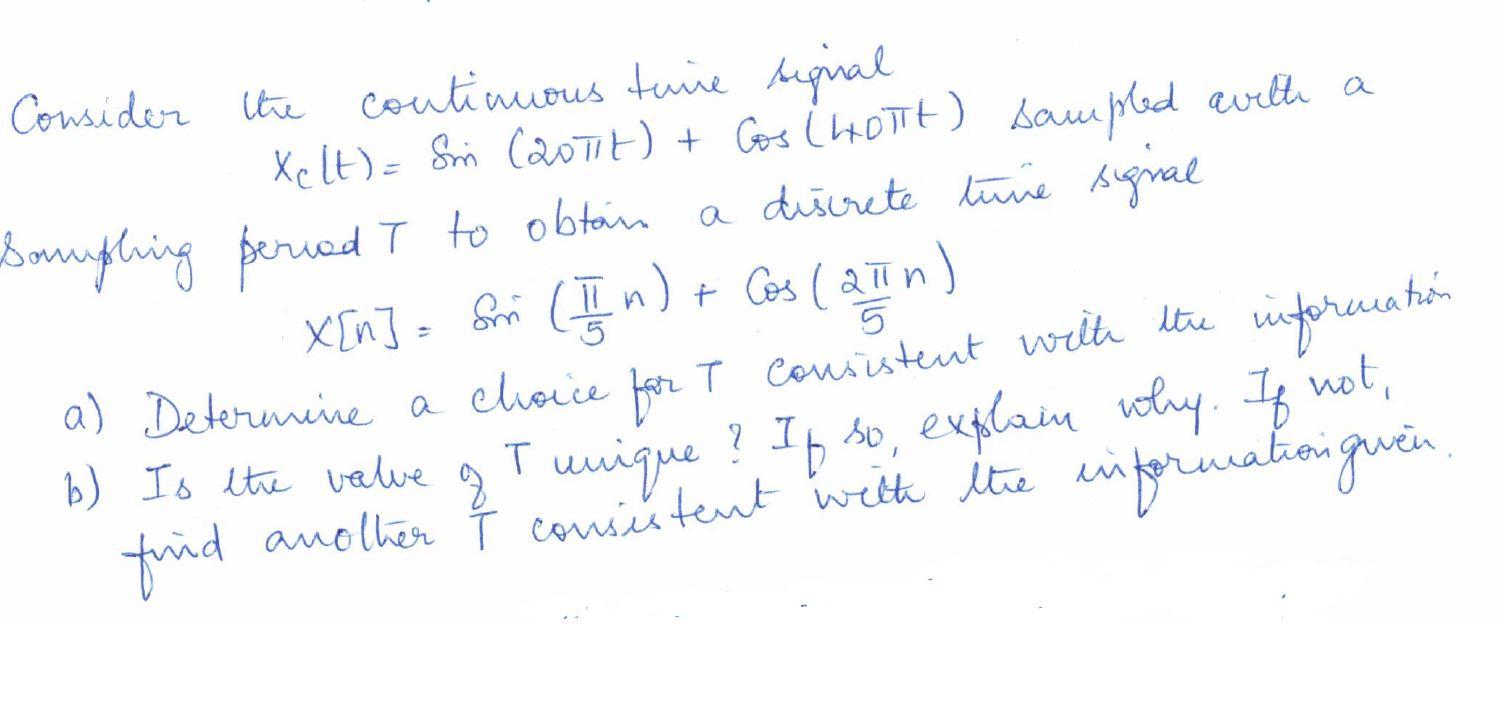 Consider the continuous time signal
Xc(t) = Sin (20πt) + Cos (40πt) sampled with a
Sampling period T to obtain a discrete time signal
X[n] = Sin (π/5 n) + Cos (2π/5 n)
a) Determine a choice for T consistent with the information
b) Is the value of T unique? If so, explain why. If not,
find another T consistent with the information given.